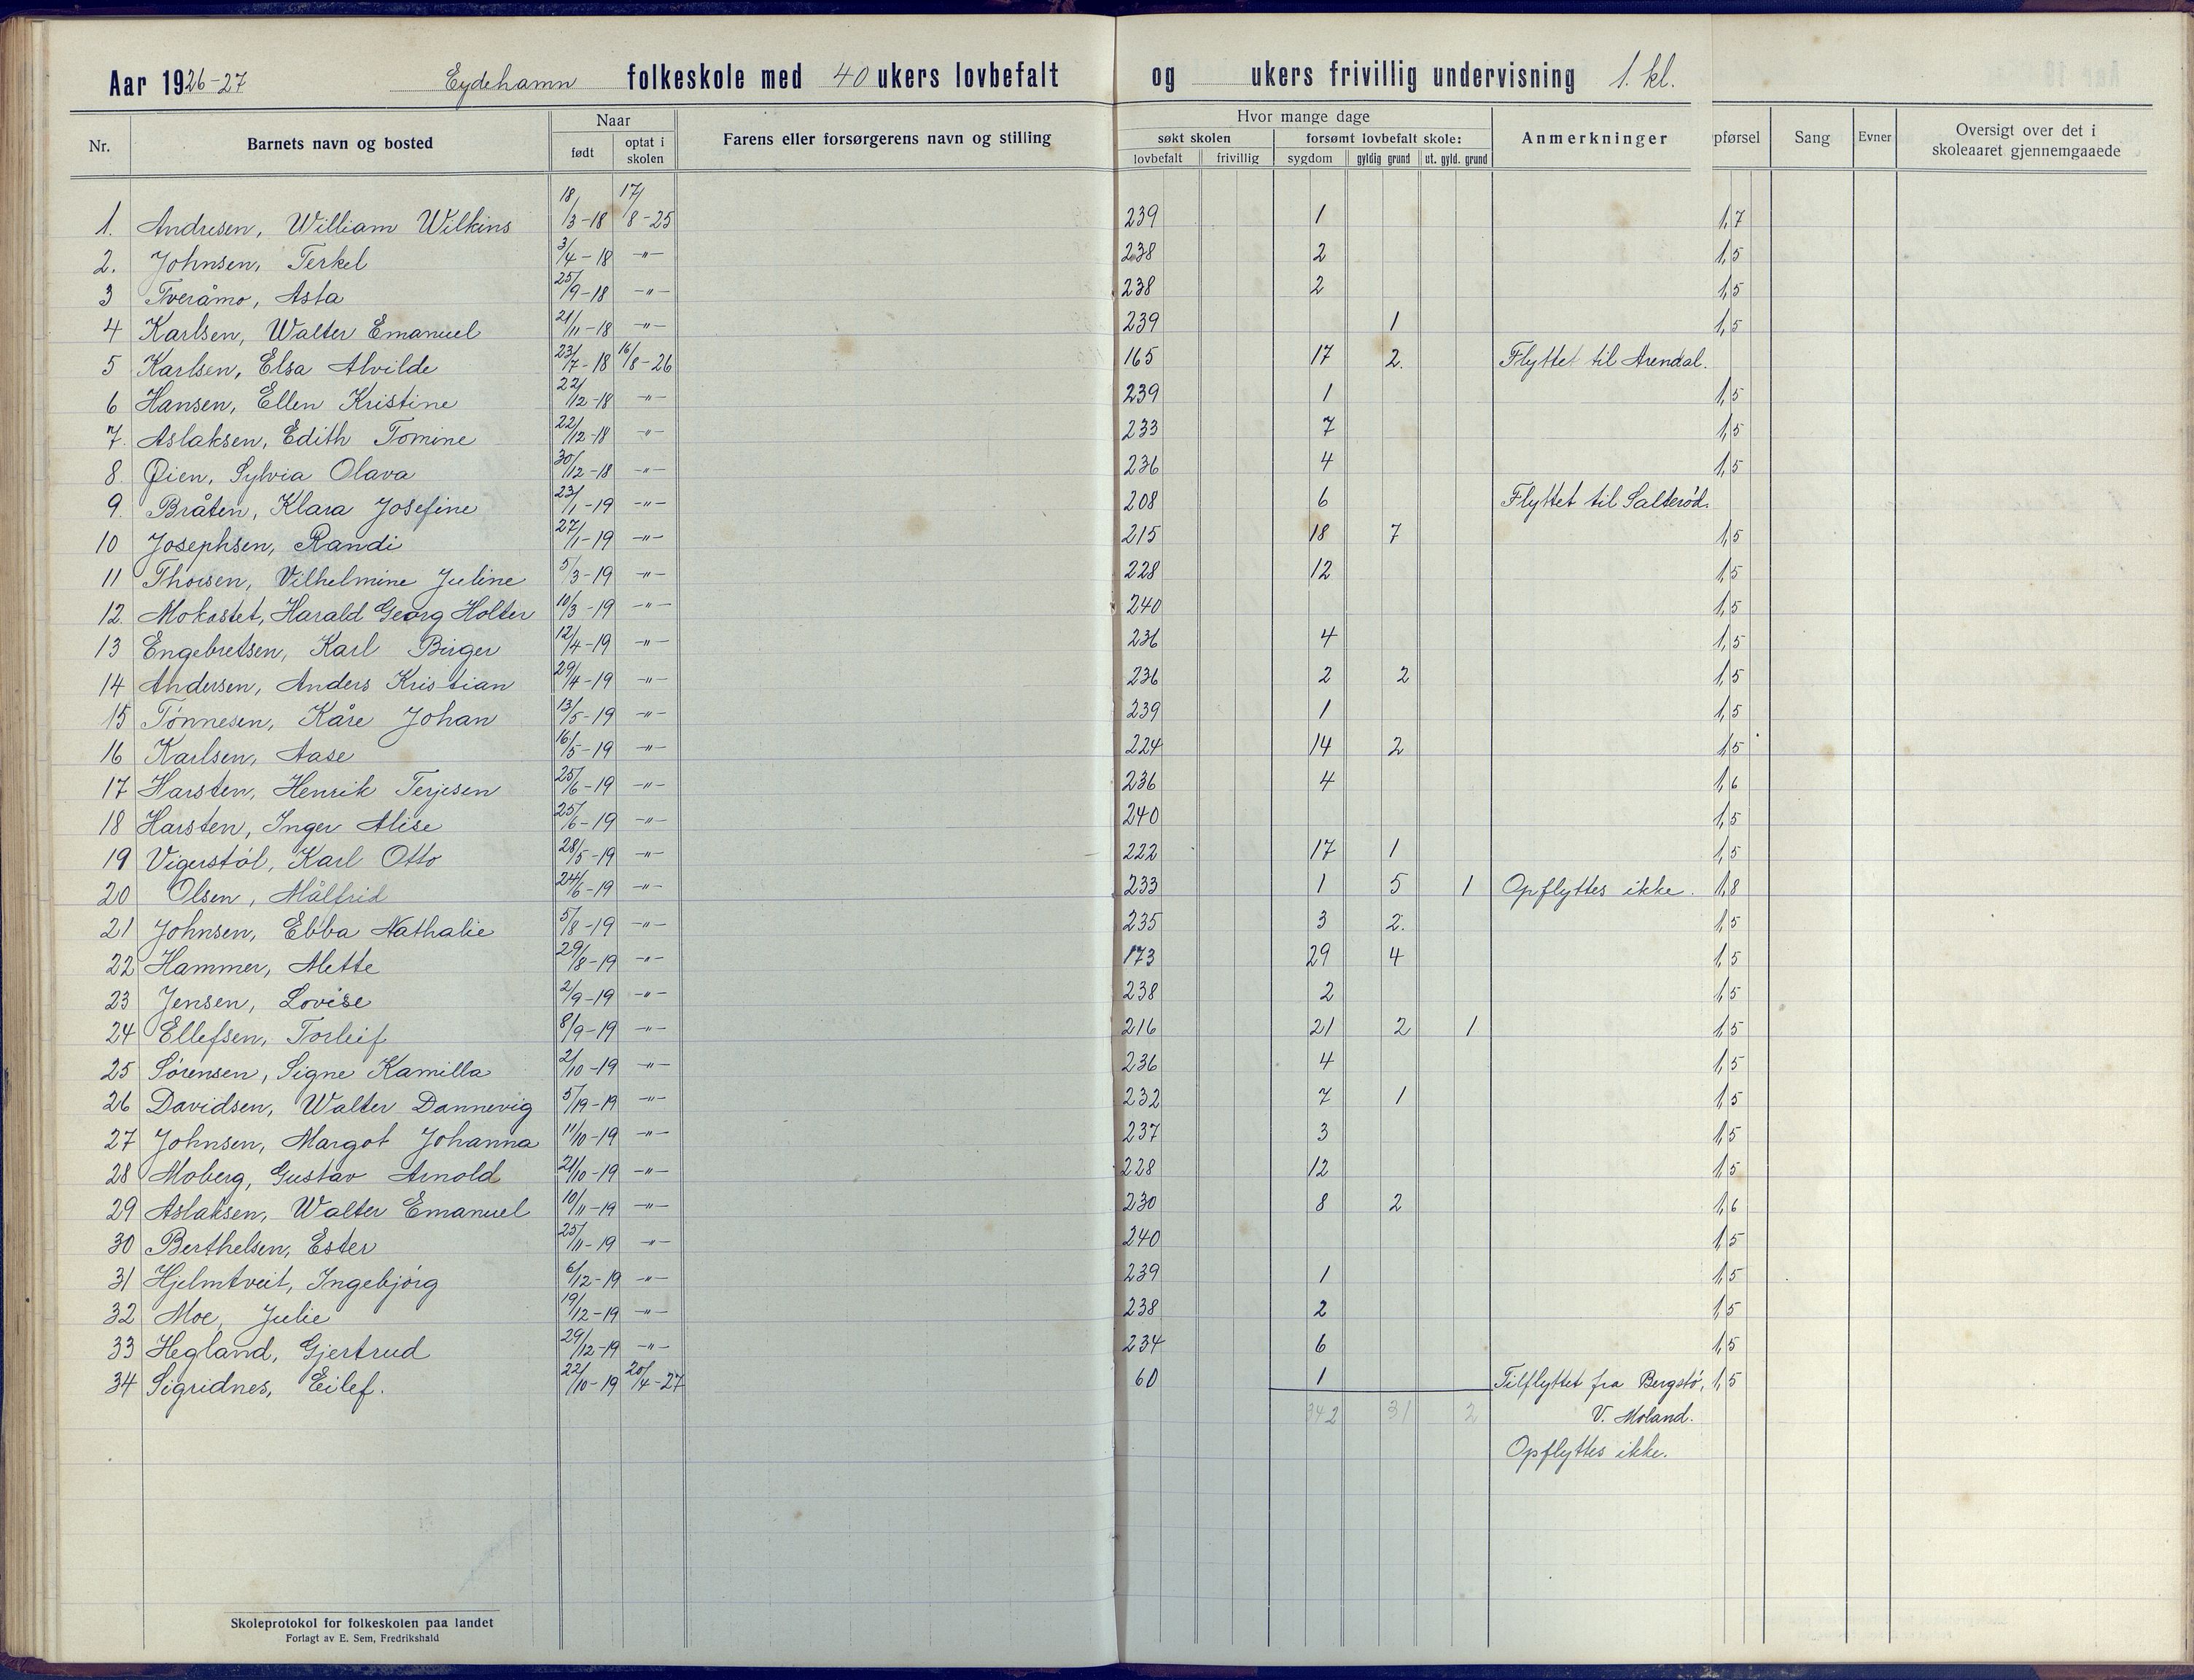 Aar 1926-27 Eydehamn folkeskole med 40 ukers lovbefalt og ukers frivillig undervisning 1. kl.
Nr. Barnets navn og bosted Naar født optat i skolen Farens eller forsørgerens navn og stilling Hvor mange dage søkt skolen lovbefalt frivillig forsømt lovbefalt skole: sygdom gyldig grund ut. gyld. grund Anmerkninger pførsel Sang Evner Oversigt over det i skoleaaret gjennemgaaede
1. Andresen, William Wilkins 18/3-18 17/8-25 239 1 1,7
2. Johnsen, Terkel 3/4-18 -"- 238 2 1,5
3 Tveråmo, Asta 25/9-18 -"- 238 2 1,5
4 Karlsen, Walter Emanuel 21/11-18 -"- 239 1 1,5
5 Karlsen, Elsa Alvilde 23/7-18 16/8-26 165 17 2. Flyttet til Arendal.
6 Hansen, Ellen Kristine 22/12-18 -"- 239 1 1,5
7. Aslaksen, Edith Tomine 22/12-18 -"- 233 7 1,5
8. Øien, Sylvia Olava 30/12-18 -"- 236 4 1,5
9. Bråten, Klara Josefine 23/1-19 -"- 208 6 Flyttet til Salterød.
10 Josephsen, Randi 27/1-19 -"- 215 18 7 1,5
11 Thorsen, Vilhelmine Juline 5/3-19 -"- 228 12 1,5
12. Mokastet, Harald Georg Holter 10/3-19 -"- 240 1,5
13 Engebretsen, Karl Birger 12/4-19 -"- 236 4 1,5
14 Andersen, Anders Kristian 29/4-19 -"- 236 2 2 1,5
15 Tønnesen, Kåre Johan 13/5-19 -"- 239 1 1,5
16 Karlsen, Aase 16/5-19 -"- 224 14 2 1,5
17 Harsten, Henrik Terjesen 25/6-19 -"- 236 4 1,6
18 Harsten, Inger Alise 25/6-19 -"- 240 1,5
19 Vigerstøl, Karl Otto 28/5-19 -"- 222 17 1 1,5
20 Olsen, Målfrid 24/6-19 -"- 233 1 5 1 Opflyttes ikke. 1,8
21 Johnsen, Ebba Nathalie 5/8-19 -"- 235 3 2. 1,5
22 Hammer, Mette 29/8-19 -"- 173 29 4 1,5
23 Jensen, Lovise 2/9-19 -"- 238 2 1,5
24 Ellefsen, Torleif 8/9-19 -"- 216 21 2 1 1,5
25 Sørensen, Signe Kamilla 2/10-19 -"- 236 4 1,5
26 Davidsen, Walter Dannevig 5/19-19 -"- 232 7 1 1,5
27 Johnsen, Margot Johanna 11/10-19 -"- 237 3 1,5
28 Moberg, Gustav Arnold 21/10-19 -"- 228 12 1,5
29 Aslaksen, Walter Emanuel 10/11-19 -"- 230 8 2 1,6
30 Berthelsen, Ester 25/11-19 -"- 240 1,5
31 Hjelmtveit, Ingebjørg 6/12-19 -"- 239 1 1,5
32 Moe, Julie 19/12-19 -"- 238 2 1,5
33 Hegland, Gjertrud 29/12-19 -"- 234 6 1,5
34 Sigridnes, Eilef. 22/10-19 20/4-27 60 1 Tilflyttet fra Bergstø, 1,5
342 31 2 V. Moland.
Opflyttes ikke.
Skoleprotokol for folkeskolen paa landet
Forlagt av E. Sem, Fredrikshald